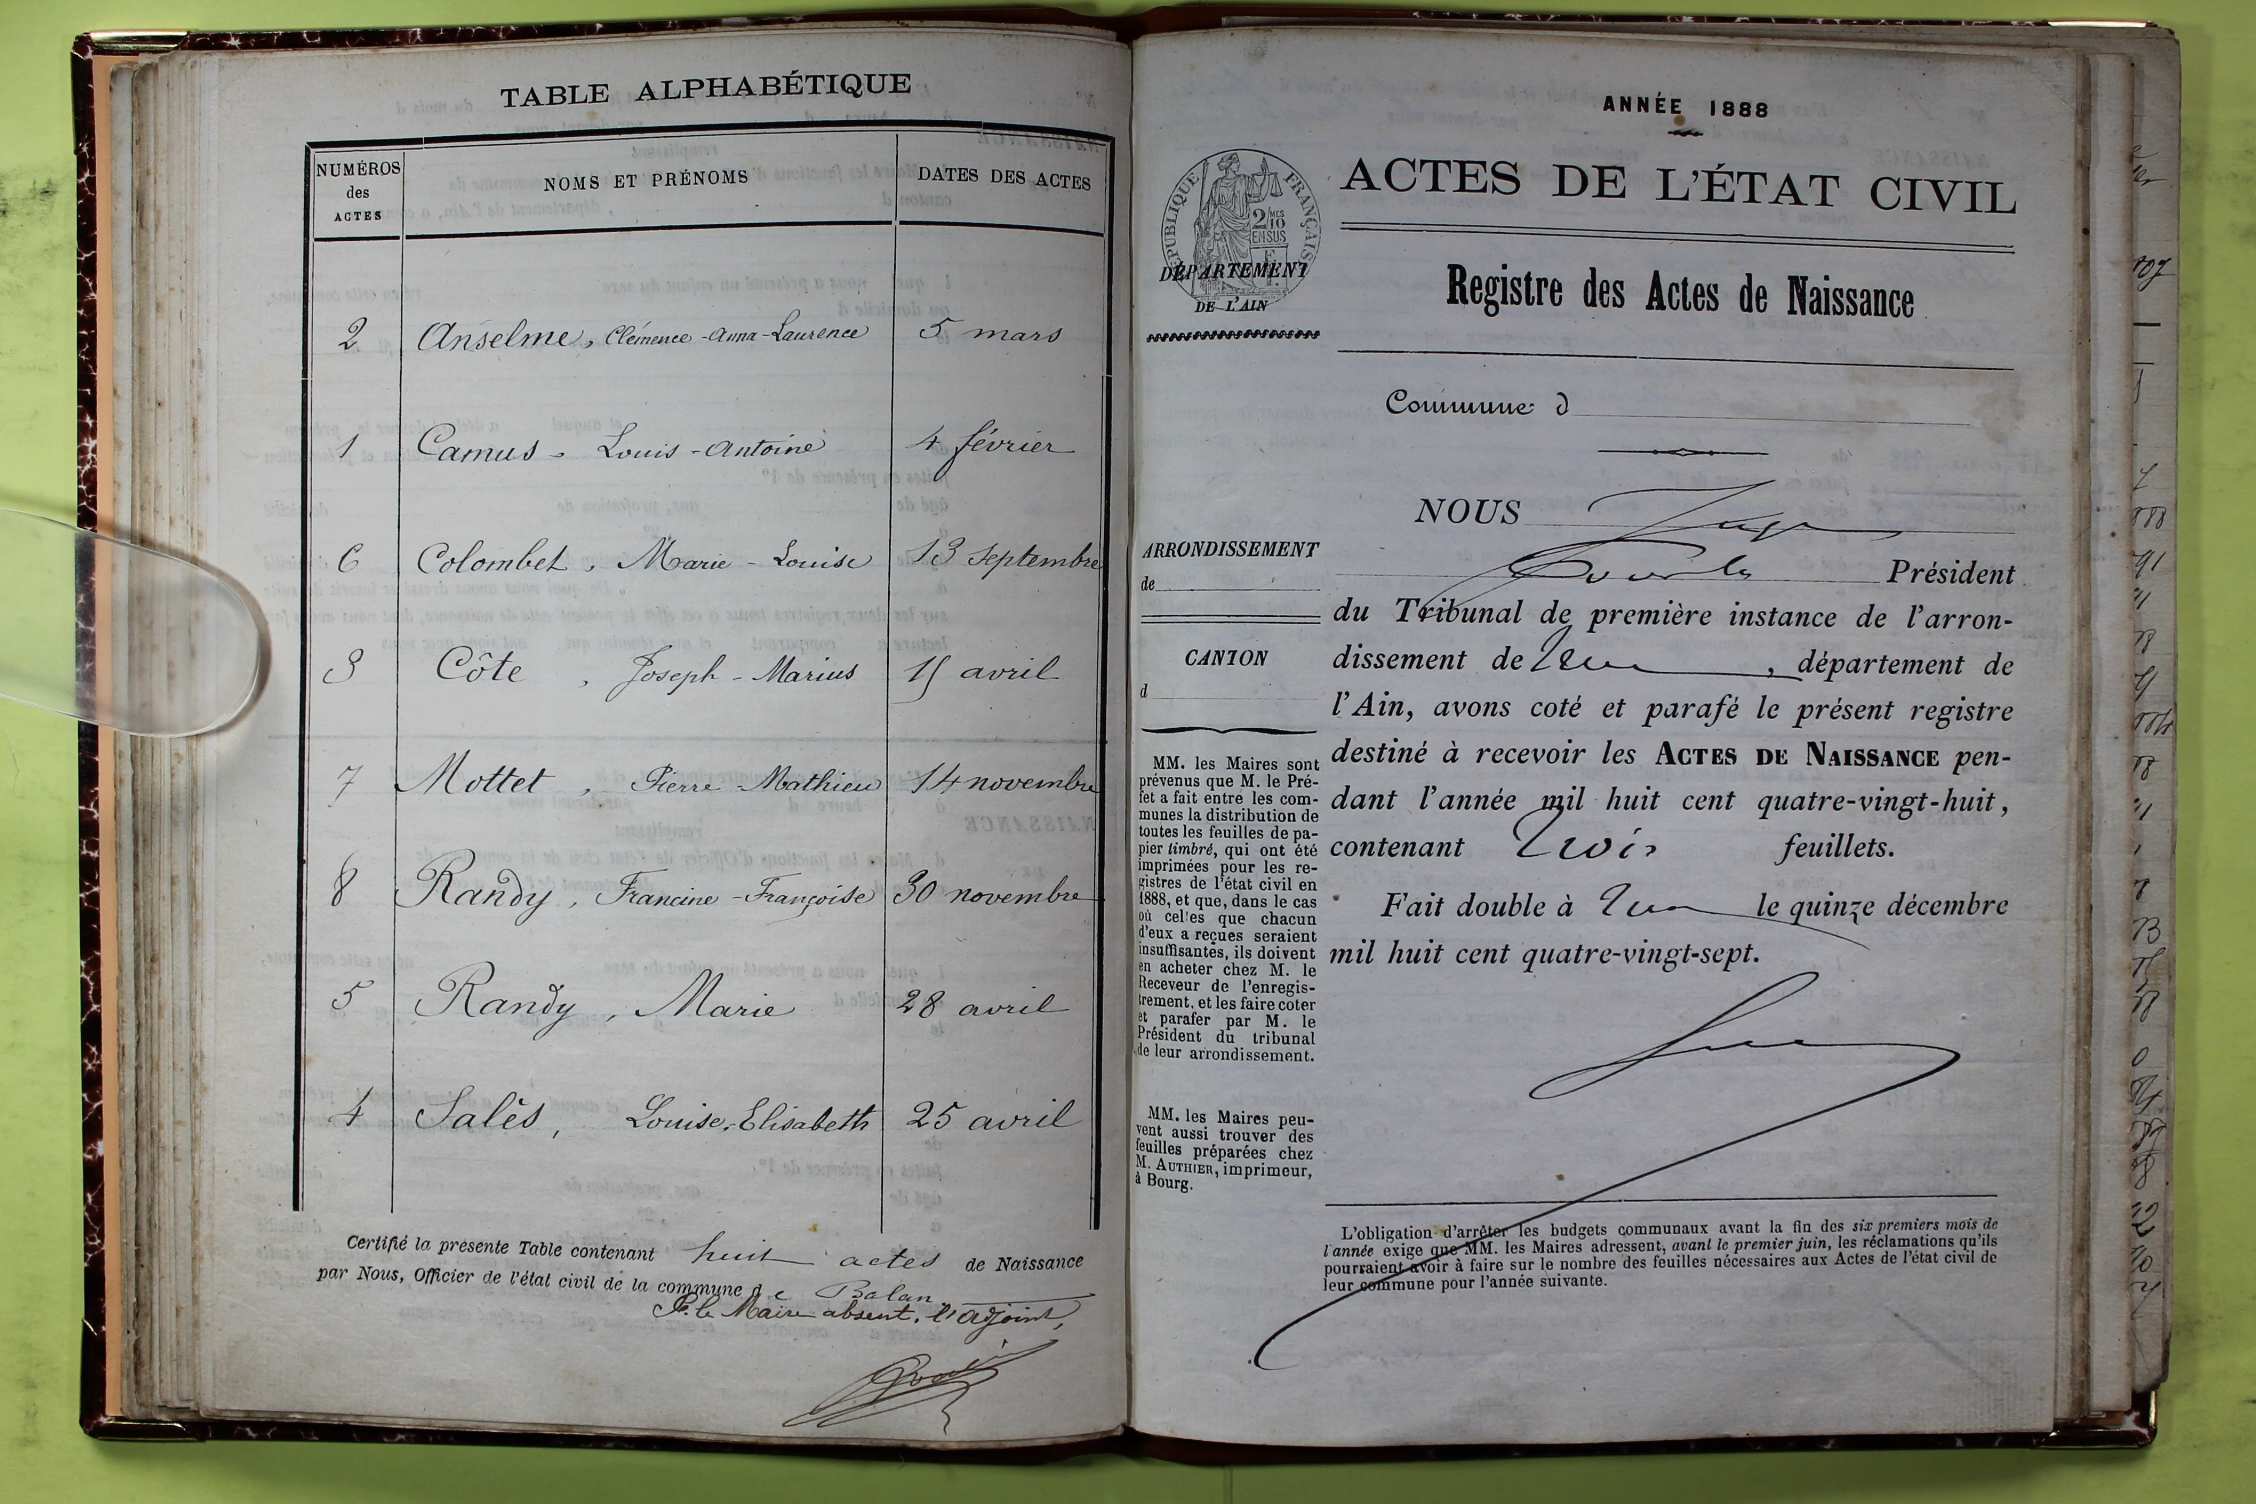 TABLE ALPHABÉTIQUE
NUMÉROS
des
ACTES
NOMS ET PRÉNOMS
DATES DES ACTES
2 Anselme, Clémence-Anna-Laurence 5 mars
1 Camus, Louis-Antoine 4 février
6 Colombet, Marie-Louise 13 septembre
3 Côte, Joseph-Marius 15 avril
7 Mottet, Pierre-Mathieu 14 novembre
8 Randy, Francine-Françoise 30 novembre
5 Randy, Marie 28 avril
4 Salès, Louise-Elisabeth 25 avril
Certifié la présente Table contenant huit actes de Naissance
par Nous, Officier de l'état civil de la commune de Balan
P. le Maire absent, l'adjoint,
ANNÉE 1888
RÉPUBLIQUE FRANÇAISE
2 MES
10
EN SUS
DÉPARTEMENT
DE L'AIN
ACTES DE L'ÉTAT CIVIL
Registre des Actes de Naissance
Commune d
NOUS
Président
du Tribunal de première instance de l'arron-
dissement de , département de
l'Ain, avons coté et parafé le présent registre
destiné à recevoir les ACTES DE NAISSANCE pen-
dant l'année mil huit cent quatre-vingt-huit,
contenant trois feuillets.
Fait double à le quinze décembre
mil huit cent quatre-vingt-sept.
ARRONDISSEMENT
de
CANTON
d
MM. les Maires sont
prévenus que M. le Pré-
fet a fait entre les com-
munes la distribution de
toutes les feuilles de pa-
pier timbré, qui ont été
imprimées pour les re-
gistres de l'état civil en
1888, et que, dans le cas
où celles que chacun
d'eux a reçues seraient
insuffisantes, ils doivent
en acheter chez M. le
Receveur de l'enregis-
trement, et les faire coter
et parafer par M. le
Président du tribunal
de leur arrondissement.
MM. les Maires peu-
vent aussi trouver des
feuilles préparées chez
M. AUTHIER, imprimeur,
à Bourg.
L'obligation d'arrêter les budgets communaux avant la fin des six premiers mois de
l'année exige que MM. les Maires adressent, avant le premier juin, les réclamations qu'ils
pourraient avoir à faire sur le nombre des feuilles nécessaires aux Actes de l'état civil de
leur commune pour l'année suivante.